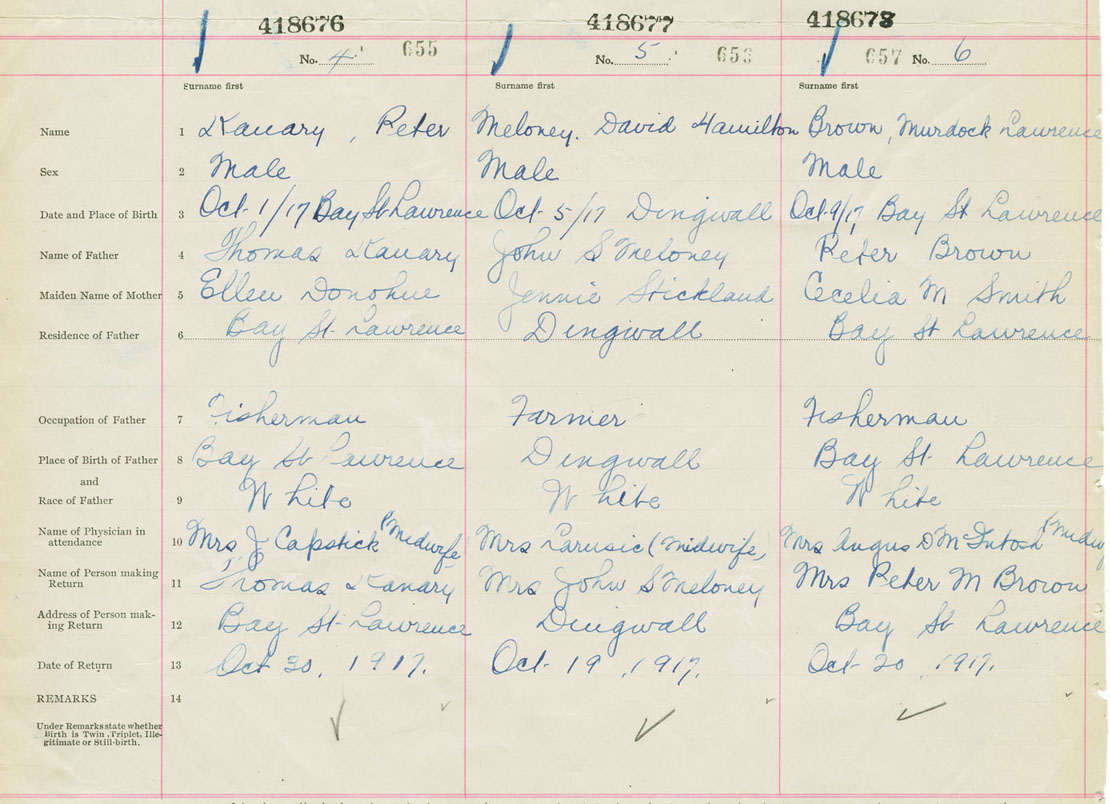 418676 418677 418678
No. 4 655 No. 5 656 657 No. 6
Surname first Surname first Surname first
Name 1 Kanary, Peter Meloney. David Hamilton Brown, Murdock Lawrence
Sex 2 Male Male Male
Date and Place of Birth 3 Oct. 1/17 Bay St Lawrence Oct. 5/17 Dingwall Oct. 9/17 Bay St Lawrence
Name of Father 4 Thomas Kanary John S Meloney Peter Brown
Maiden Name of Mother 5 Ellen Donohue Jennie Stickland Cecelia M Smith
Residence of Father 6 Bay St. Lawrence Dingwall Bay St Lawrence
Occupation of Father 7 Fisherman Farmer Fisherman
Place of Birth of Father 8 Bay St Lawrence Dingwall Bay St. Lawrence
and
Race of Father 9 White White White
Name of Physician in
attendance 10 Mrs J Capstick (Midwife Mrs Larusic (Midwife, Mrs Angus D McIntosh (Midwife
Name of Person making
Return 11 Thomas Kanary Mrs John S Meloney Mrs Peter M Brown
Address of Person mak-
ing Return 12 Bay St. Lawrence Dingwall Bay St Lawrence
Date of Return 13 Oct 30, 1917. Oct. 19, 1917. Oct 20, 1917.
REMARKS 14
Under Remarks state whether
Birth is Twin, Triplet, Ille-
gitimate or Still-birth.